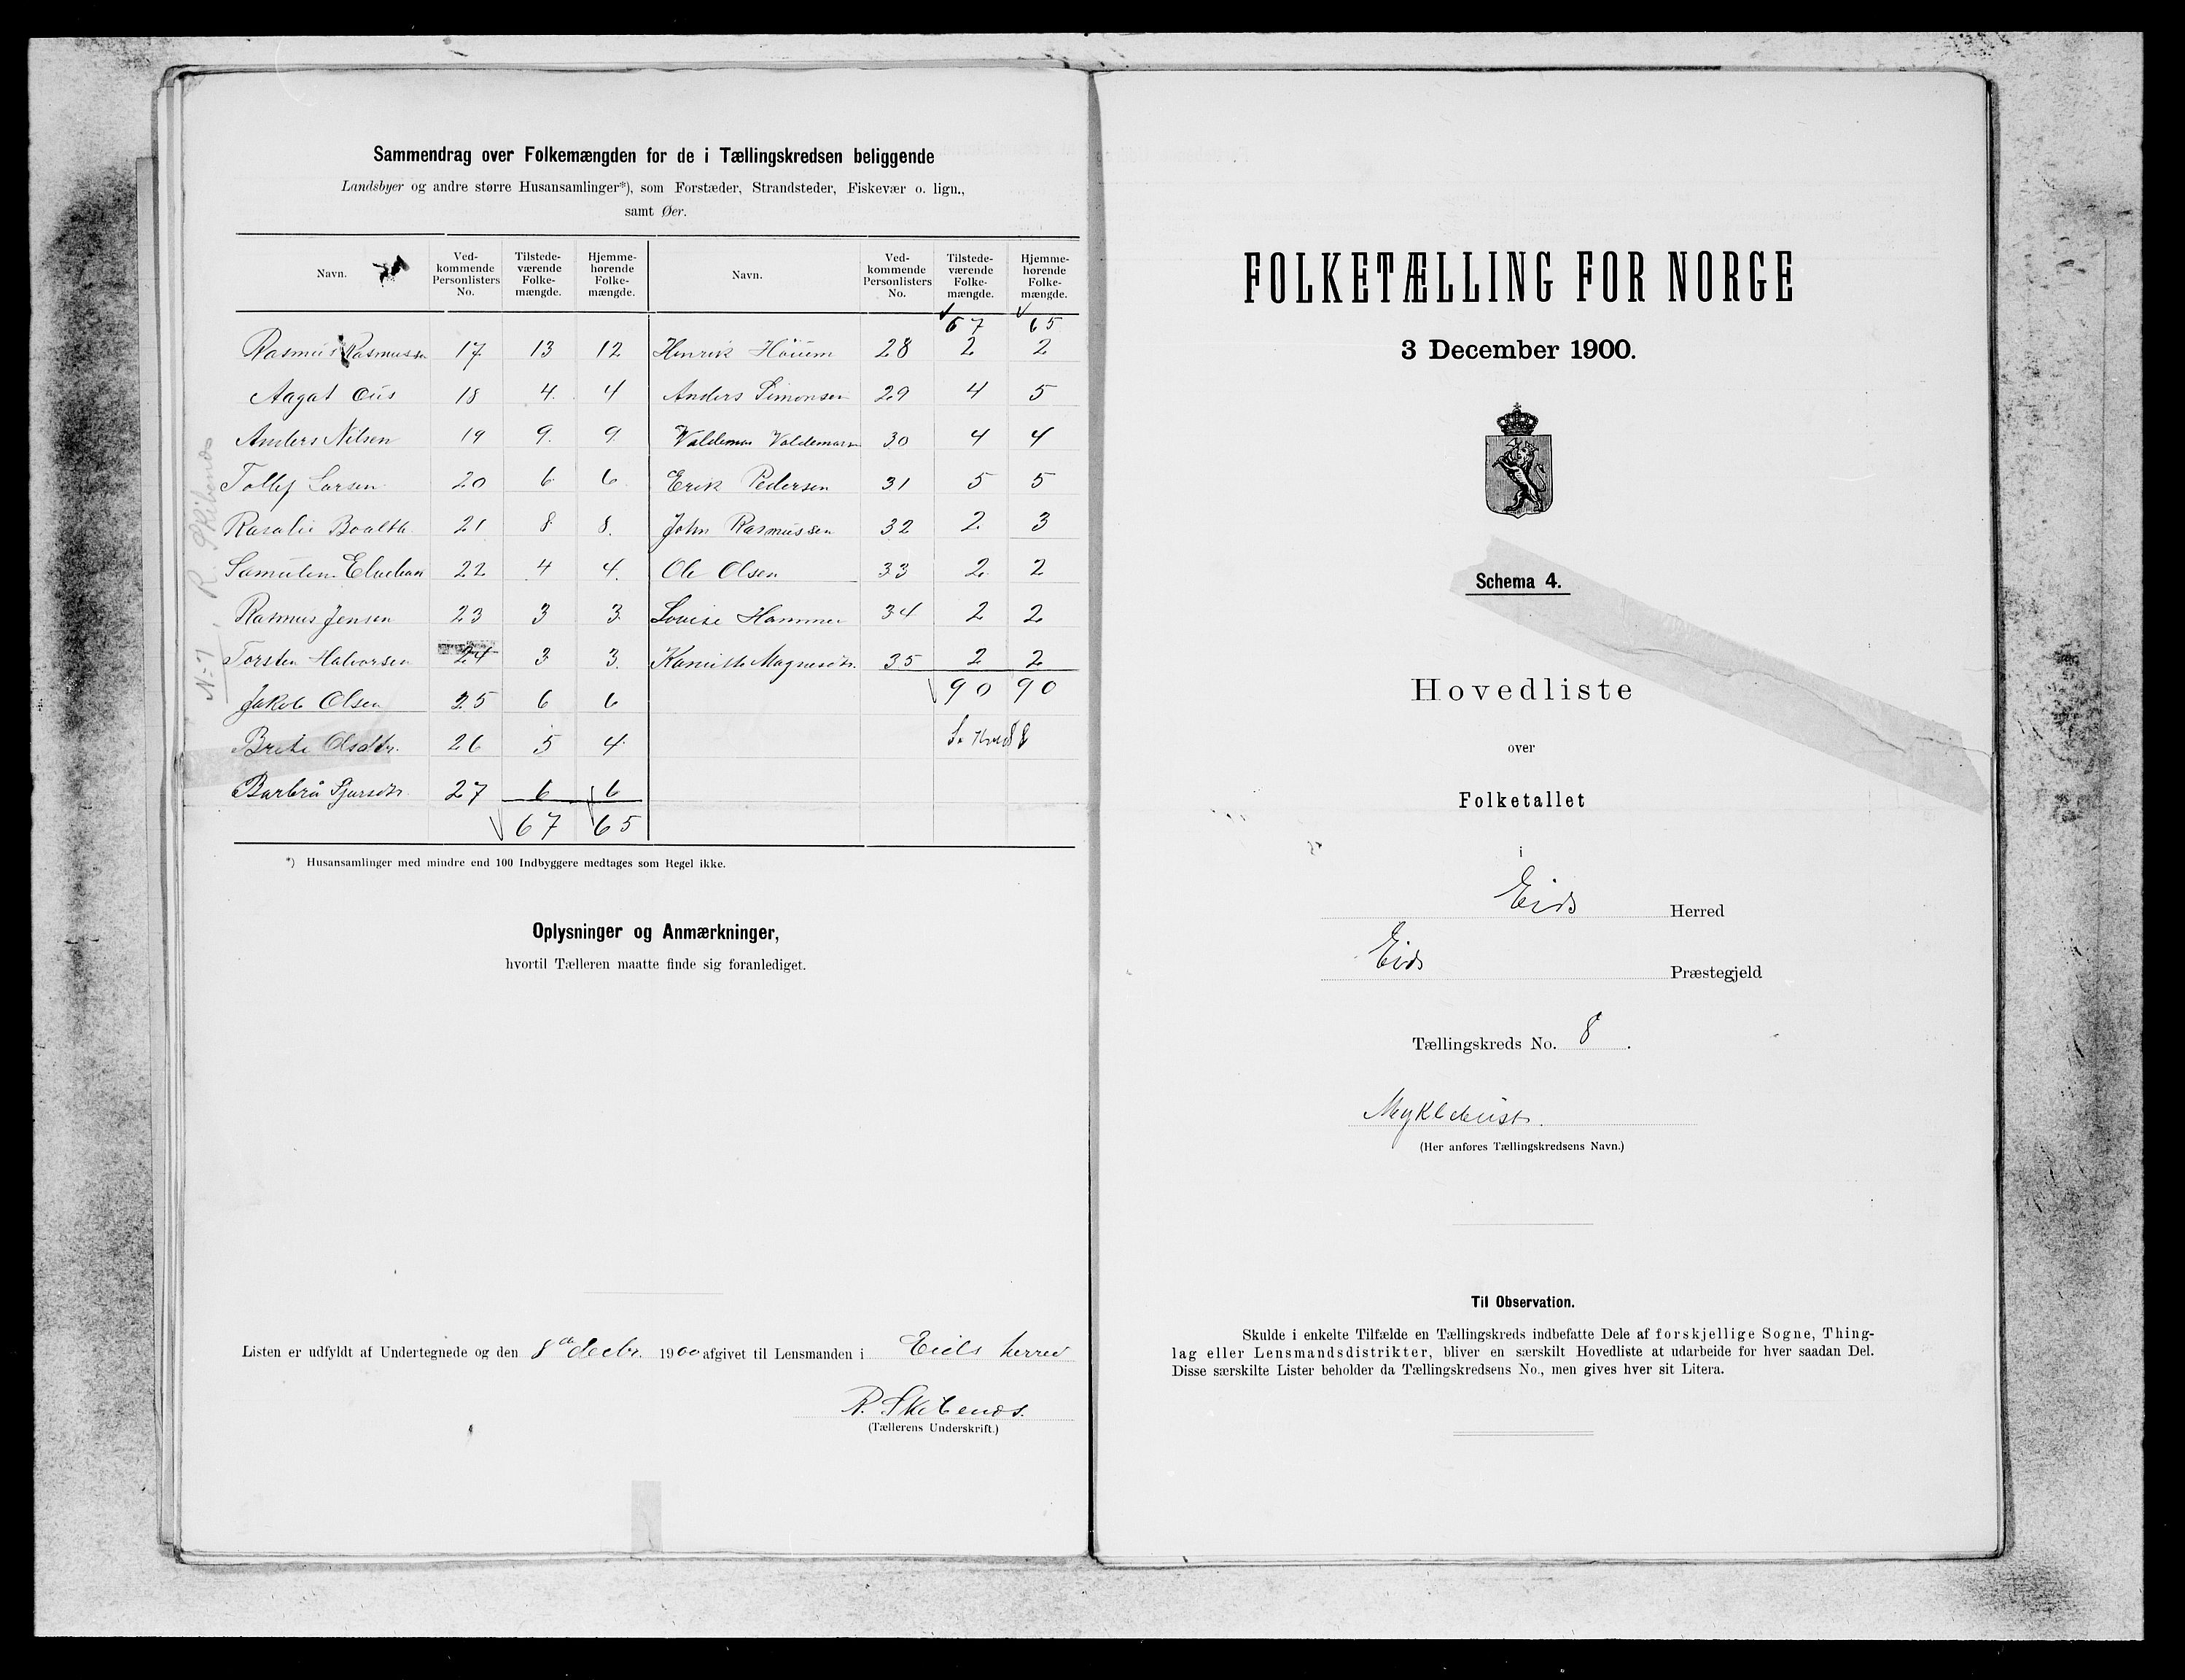 Sammendrag over Folkemængden for de i Tællingskredsen beliggende
Landsbyer og andre større Husansamlinger*), som Forstæder, Strandsteder, Fiskevær o. lign.,
samt Øer.
Navn. Ved-kommende Personlisters No. Tilstede-værende Folke-mængde. Hjemme-hørende Folke-mængde. Navn. Ved-kommende Personlisters No. Tilstede-værende Folke-mængde. Hjemme-hørende Folke-mængde.
67 65
Rasmus Rasmussen 17 13 12 Henrik Höium 28 2 2
Aagat 18 4 4 Anders Simonsen 29 4 5
Anders Nilsen 19 9 9 Valdemar Valdemarsn 30 4 4
Tollef Larsen 20 6 6 Erik Pedersen 31 5 5
Rasalie Boalth 21 8 8 John Rasmussen 32 2 3
22 4 4 Ole Olsen 33 2 2
Rasmus Jensen 23 3 3 Louise Hammer 34 2 2
Torsten Halvorsen 24 3 3 Magnesdtr. 35 2 2
Jakob Olsen 25 6 6 90 90
Brite Olsdtr. 26 5 4
Barbra Sjursdtr. 27 6 6
67 65
*) Husansamlinger med mindre end 100 Indbyggere medtages som Regel ikke.
Oplysninger og Anmærkninger,
hvortil Tælleren maatte finde sig foranlediget.
Listen er udfyldt af Undertegnede og den 8de decbr. 1900 afgivet til Lensmanden i Eids herred
R. Skibenæs.
(Tællerens Underskrift.)
N-7, R. Skibenæs
FOLKETÆLLING FOR NORGE
3 December 1900.
Schema 4.
Hovedliste
over
Folketallet
i
Eids Herred
Eids Præstegjeld
Tællingskreds No. 8.
Myklebust.
(Her anføres Tællingskredsens Navn.)
Til Observation.
Skulde i enkelte Tilfælde en Tællingskreds indbefatte Dele af forskjellige Sogne, Thing-
lag eller Lensmandsdistrikter, bliver en særskilt Hovedliste at udarbeide for hver saadan Del.
Disse særskilte Lister beholder da Tællingskredsens No., men gives hver sit Litera.